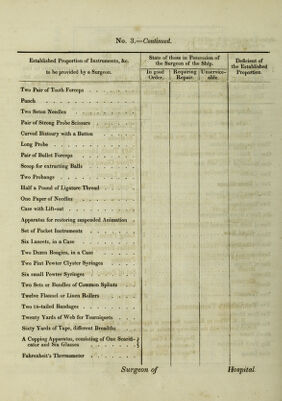 No. 3.—Continued.
Established Proportion of Instruments, &c.
to be provided by a Surgeon.
State of those in Possession of
the Surgeon of the Ship.
In good
Order.
Requiring
Repair.
Unservice-
able.
Deficient of
the Established
Proportion.
Two Pair of Tooth Forceps
Punch
Two Seton Needles
Pair of Strong Probe Scissors
Curved Bistoury with a Button
Long Probe
Pair of Bullet Forceps
Scoop for extracting Balls
Two Probangs
Half a Pound of Ligature Thread
One Paper of Needles
Case with Lift-out
Apparatus for restoring suspended Animation
Set of Pocket Instruments
Six Lancets, in a Case
Two Dozen Bougies, in a Case
Two Pint Pewter Clyster Syringes
Six small Pewter Syringes
Two Sets or Bundles of Common Splints
Twelve Flannel or Linen Rollers
Two 18-tailed Bandages
Twenty Yards of Web for Tourniquets
Sixty Yards of Tape, different Breadths
A Cupping Apparatus, consisting of One Scarifi-
cator and Six Glasses
Fahrenheit's Thermometer
Surgeon of Hospital.